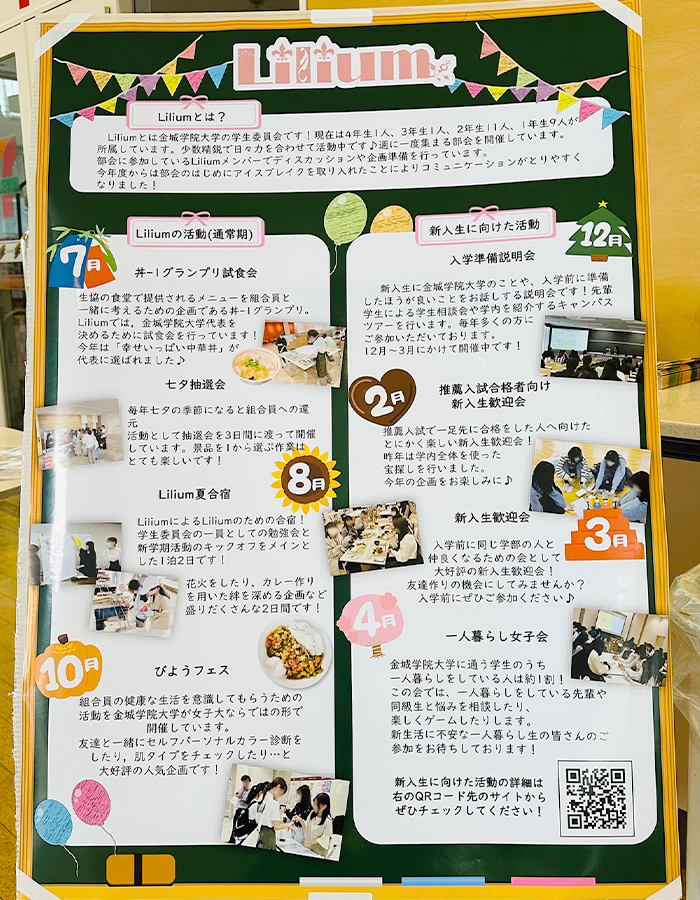 Lilium
Liliumとは？
Liliumとは金城学院大学の学生委員会です！現在は4年生1人、3年生1人、2年生11人、1年生9人が
所属しています。少数精鋭で日々力を合わせて活動中です♪週に一度集まる部会を開催しています。
部会に参加しているLiliumメンバーでディスカッションや企画準備を行っています。
今年度からは部会のはじめにアイスブレイクを取り入れたことによりコミュニケーションがとりやすく
なりました！
Liliumの活動(通常期)
7月
丼-1グランプリ試食会
生協の食堂で提供されるメニューを組合員と
一緒に考えるための企画である丼-1グランプリ。
Liliumでは，金城学院大学代表を
決めるために試食会を行っています！
今年は「幸せいっぱい中華丼」が
代表に選ばれました♪
七夕抽選会
毎年七夕の季節になると組合員への還
元
活動として抽選会を3日間に渡って開催
しています。景品を1から選ぶ作業は
とても楽しいです！
8月
Lilium夏合宿
LiliumによるLiliumのための合宿！
学生委員会の一員としての勉強会と
新学期活動のキックオフをメインと
した1泊2日です！
花火をしたり、カレー作り
を用いた絆を深める企画など
盛りだくさんな2日間です！
10月
びようフェス
組合員の健康な生活を意識してもらうための
活動を金城学院大学が女子大ならではの形で
開催しています。
友達と一緒にセルフパーソナルカラー診断を
したり，肌タイプをチェックしたり…と
大好評の人気企画です！
新入生に向けた活動
12月
入学準備説明会
新入生に金城学院大学のことや、入学前に準備
したほうが良いことをお話しする説明会です！先輩
学生による学生相談会や学内を紹介するキャンパス
ツアーを行います。毎年多くの方に
ご参加いただいております。
12月～3月にかけて開催中です！
2月
推薦入試合格者向け
新入生歓迎会
推薦入試で一足先に合格をした人へ向けた
とにかく楽しい新入生歓迎会！
昨年は学内全体を使った
宝探しを行いました。
今年の企画をお楽しみに♪
3月
新入生歓迎会
入学前に同じ学部の人と
仲良くなるための会として
大好評の新入生歓迎会！
友達作りの機会にしてみませんか？
入学前にぜひご参加ください♪
4月
一人暮らし女子会
金城学院大学に通う学生のうち
一人暮らしをしている人は約1割！
この会では、一人暮らしをしている先輩や
同級生と悩みを相談したり、
楽しくゲームしたりします。
新生活に不安な一人暮らし生の皆さんのご
参加をお待ちしております！
新入生に向けた活動の詳細は
右のQRコード先のサイトから
ぜひチェックしてください！